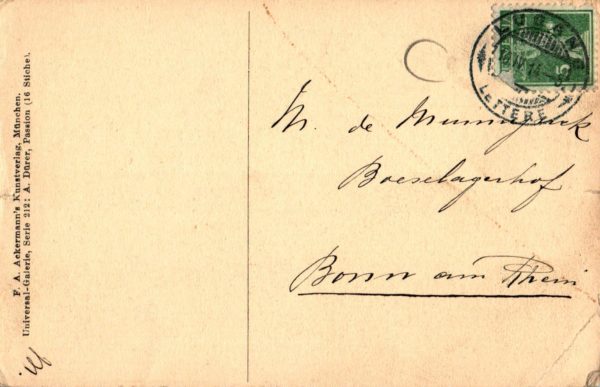 F. A. Ackermann's Kunstverlag, München.
Universal-Galerie, Serie 212: A. Dürer, Passion (16 Stiche).
LUGANO
LETTERE
5
M. de
Boeselagerhof
Bonn am Rhein